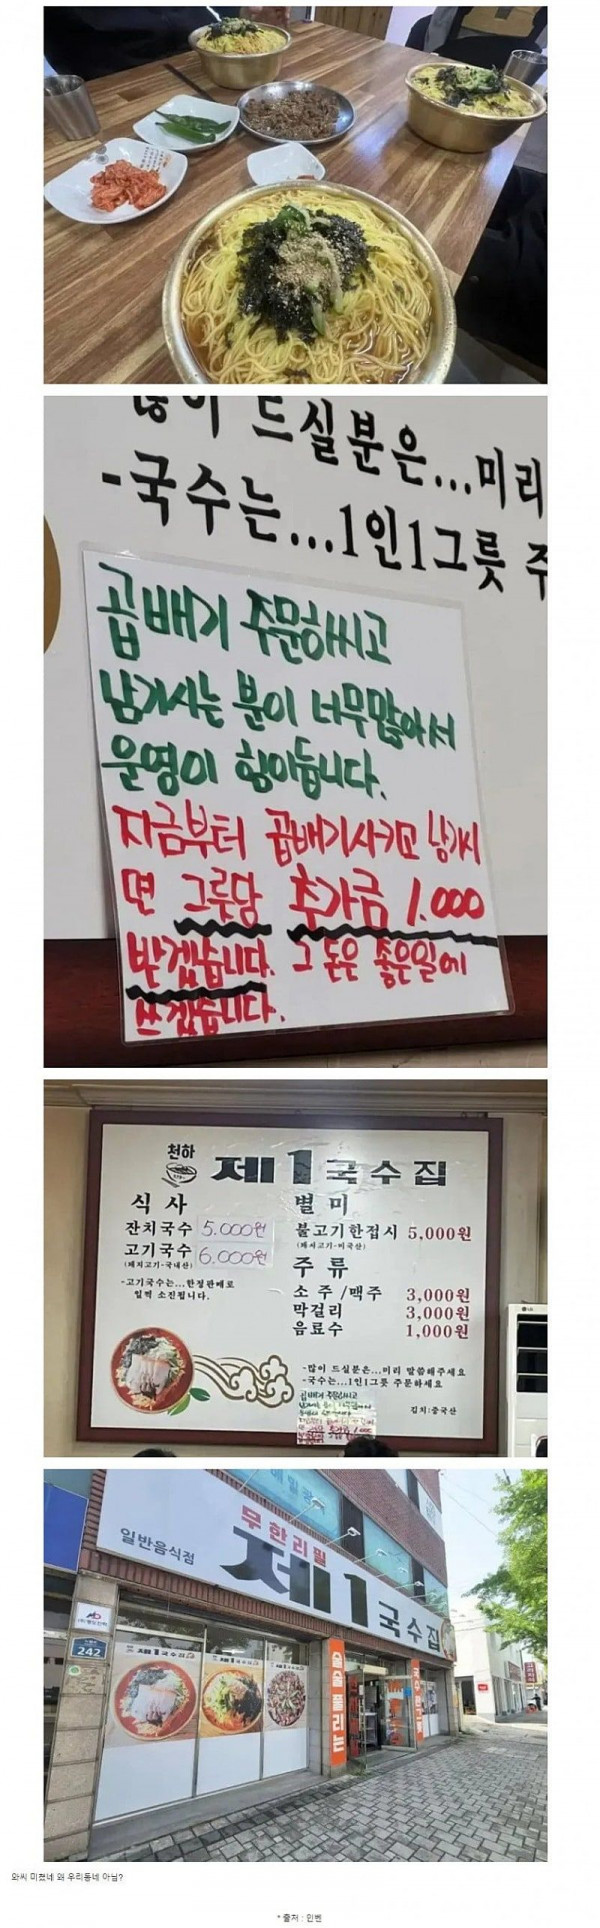 많이 드실분은...미리
-국수는...1인1그릇 주
곱배기 주문하시고
남기시는 분이 너무많아서
운영이 힘이듭니다.
지금부터 곱배기시키고 남기시
면 그릇당 추가금 1.000
받겠습니다. 그 돈은 좋은일에
쓰겠습니다.
천하
제1국수집
식사
잔치국수 5.000원
고기국수 6.000원
(돼지고기-국내산)
-고기국수는...한정판매로
일찍 소진됩니다.
별미
불고기한접시 5,000원
(돼지고기-미국산)
주류
소주/맥주 3,000원
막걸리 3,000원
음료수 1,000원
-많이 드실분은...미리 말씀해주세요
-국수는...1인1그릇 주문하세요
김치:중국산
곱배기 주문하시고
일반음식점
무한리필
제1국수집
242
제1국수집
제1국수집
제1국수집
술술풀리는
와씨 미쳤네 왜 우리동네 아님?
* 출처 : 인벤